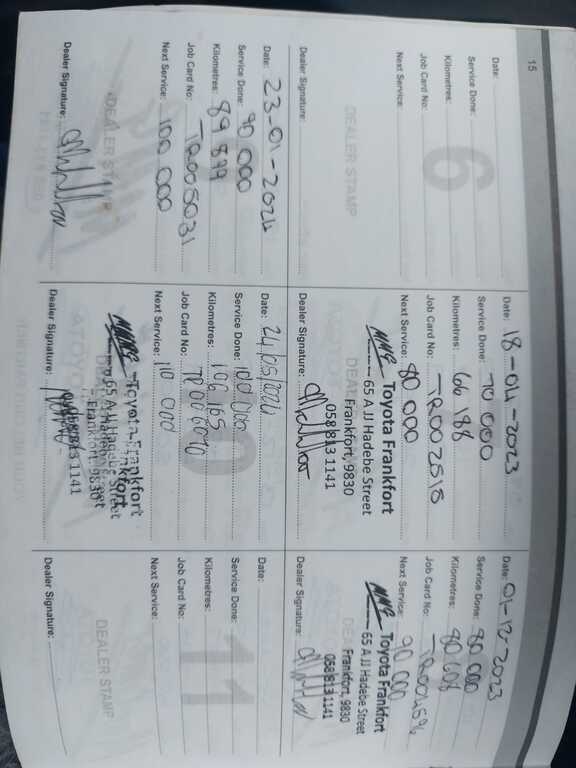 15
Date:
Service Done:
Kilometres:
Job Card No:
Next Service:
Dealer Signature:
6
DEALER STAMP
Date: 18-04-2023
Service Done: 70 000
Kilometres: 66 188
Job Card No: TR002515
Next Service: 80 000
Toyota Frankfort
65 A JJ Hadebe Street
Frankfort, 9830
058 813 1141
Dealer Signature:
Date: 01-12-2023
Service Done: 80 000
Kilometres: 80 608
Job Card No: TR004596
Next Service: 90 000
Toyota Frankfort
65 A JJ Hadebe Street
Frankfort, 9830
058 813 1141
Dealer Signature:
Date: 23-01-2024
Service Done: 90 000
Kilometres: 89 899
Job Card No: TR005031
Next Service: 100 000
DEALER STAMP
Dealer Signature:
Date: 24/05/2024
Service Done: 100 000
Kilometres: 106 165
Job Card No: TR006070
Next Service: 110 000
Toyota Frankfort
65 A JJ Hadebe Street
Frankfort, 9830
058 813 1141
Dealer Signature:
Date:
Service Done:
Kilometres:
Job Card No:
Next Service:
Dealer Signature:
11
DEALER STAMP